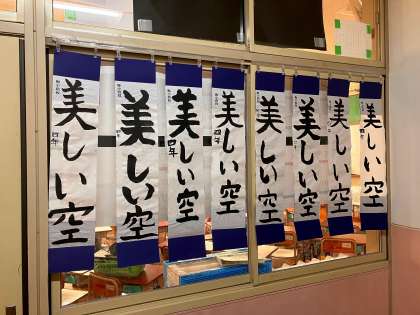 美しい空
四年
美しい空
美しい空
四年
美しい空
四年
美しい空
美しい空
美しい空
美しい空